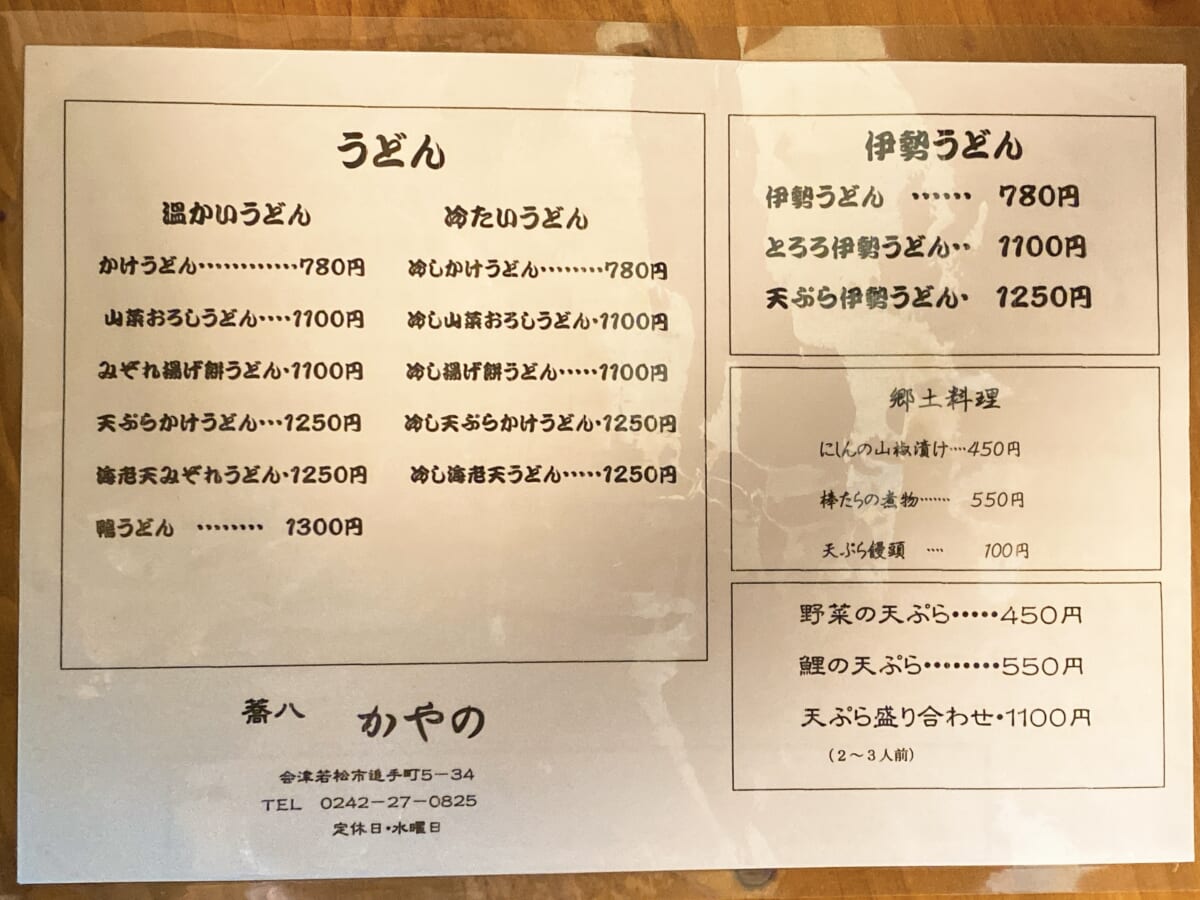 うどん
温かいうどん
かけうどん‥‥‥‥‥‥780円
山菜おろしうどん‥‥1100円
みぞれ揚げ餅うどん・1100円
天ぷらかけうどん…1250円
海老天みぞれうどん・1250円
鴨うどん ‥‥‥‥ 1300円
冷たいうどん
冷しかけうどん‥‥‥‥780円
冷し山菜おろしうどん・1100円
冷し揚げ餅うどん・・・・・1100円
冷し天ぷらかけうどん・1250円
冷し海老天うどん・・・・・1250円
蕎八 かやの
会津若松市追手町5-34
TEL 0242-27-0825
定休日・水曜日
伊勢うどん
伊勢うどん ‥‥‥ 780円
とろろ伊勢うどん‥ 1100円
天ぷら伊勢うどん・ 1250円
郷土料理
にしんの山椒漬け‥‥450円
棒たらの煮物‥‥‥・ 550円
天ぷら饅頭 ‥‥ 100円
野菜の天ぷら・・・・・450円
鯉の天ぷら・・・・・・・・550円
天ぷら盛り合わせ・1100円
(2～3人前)